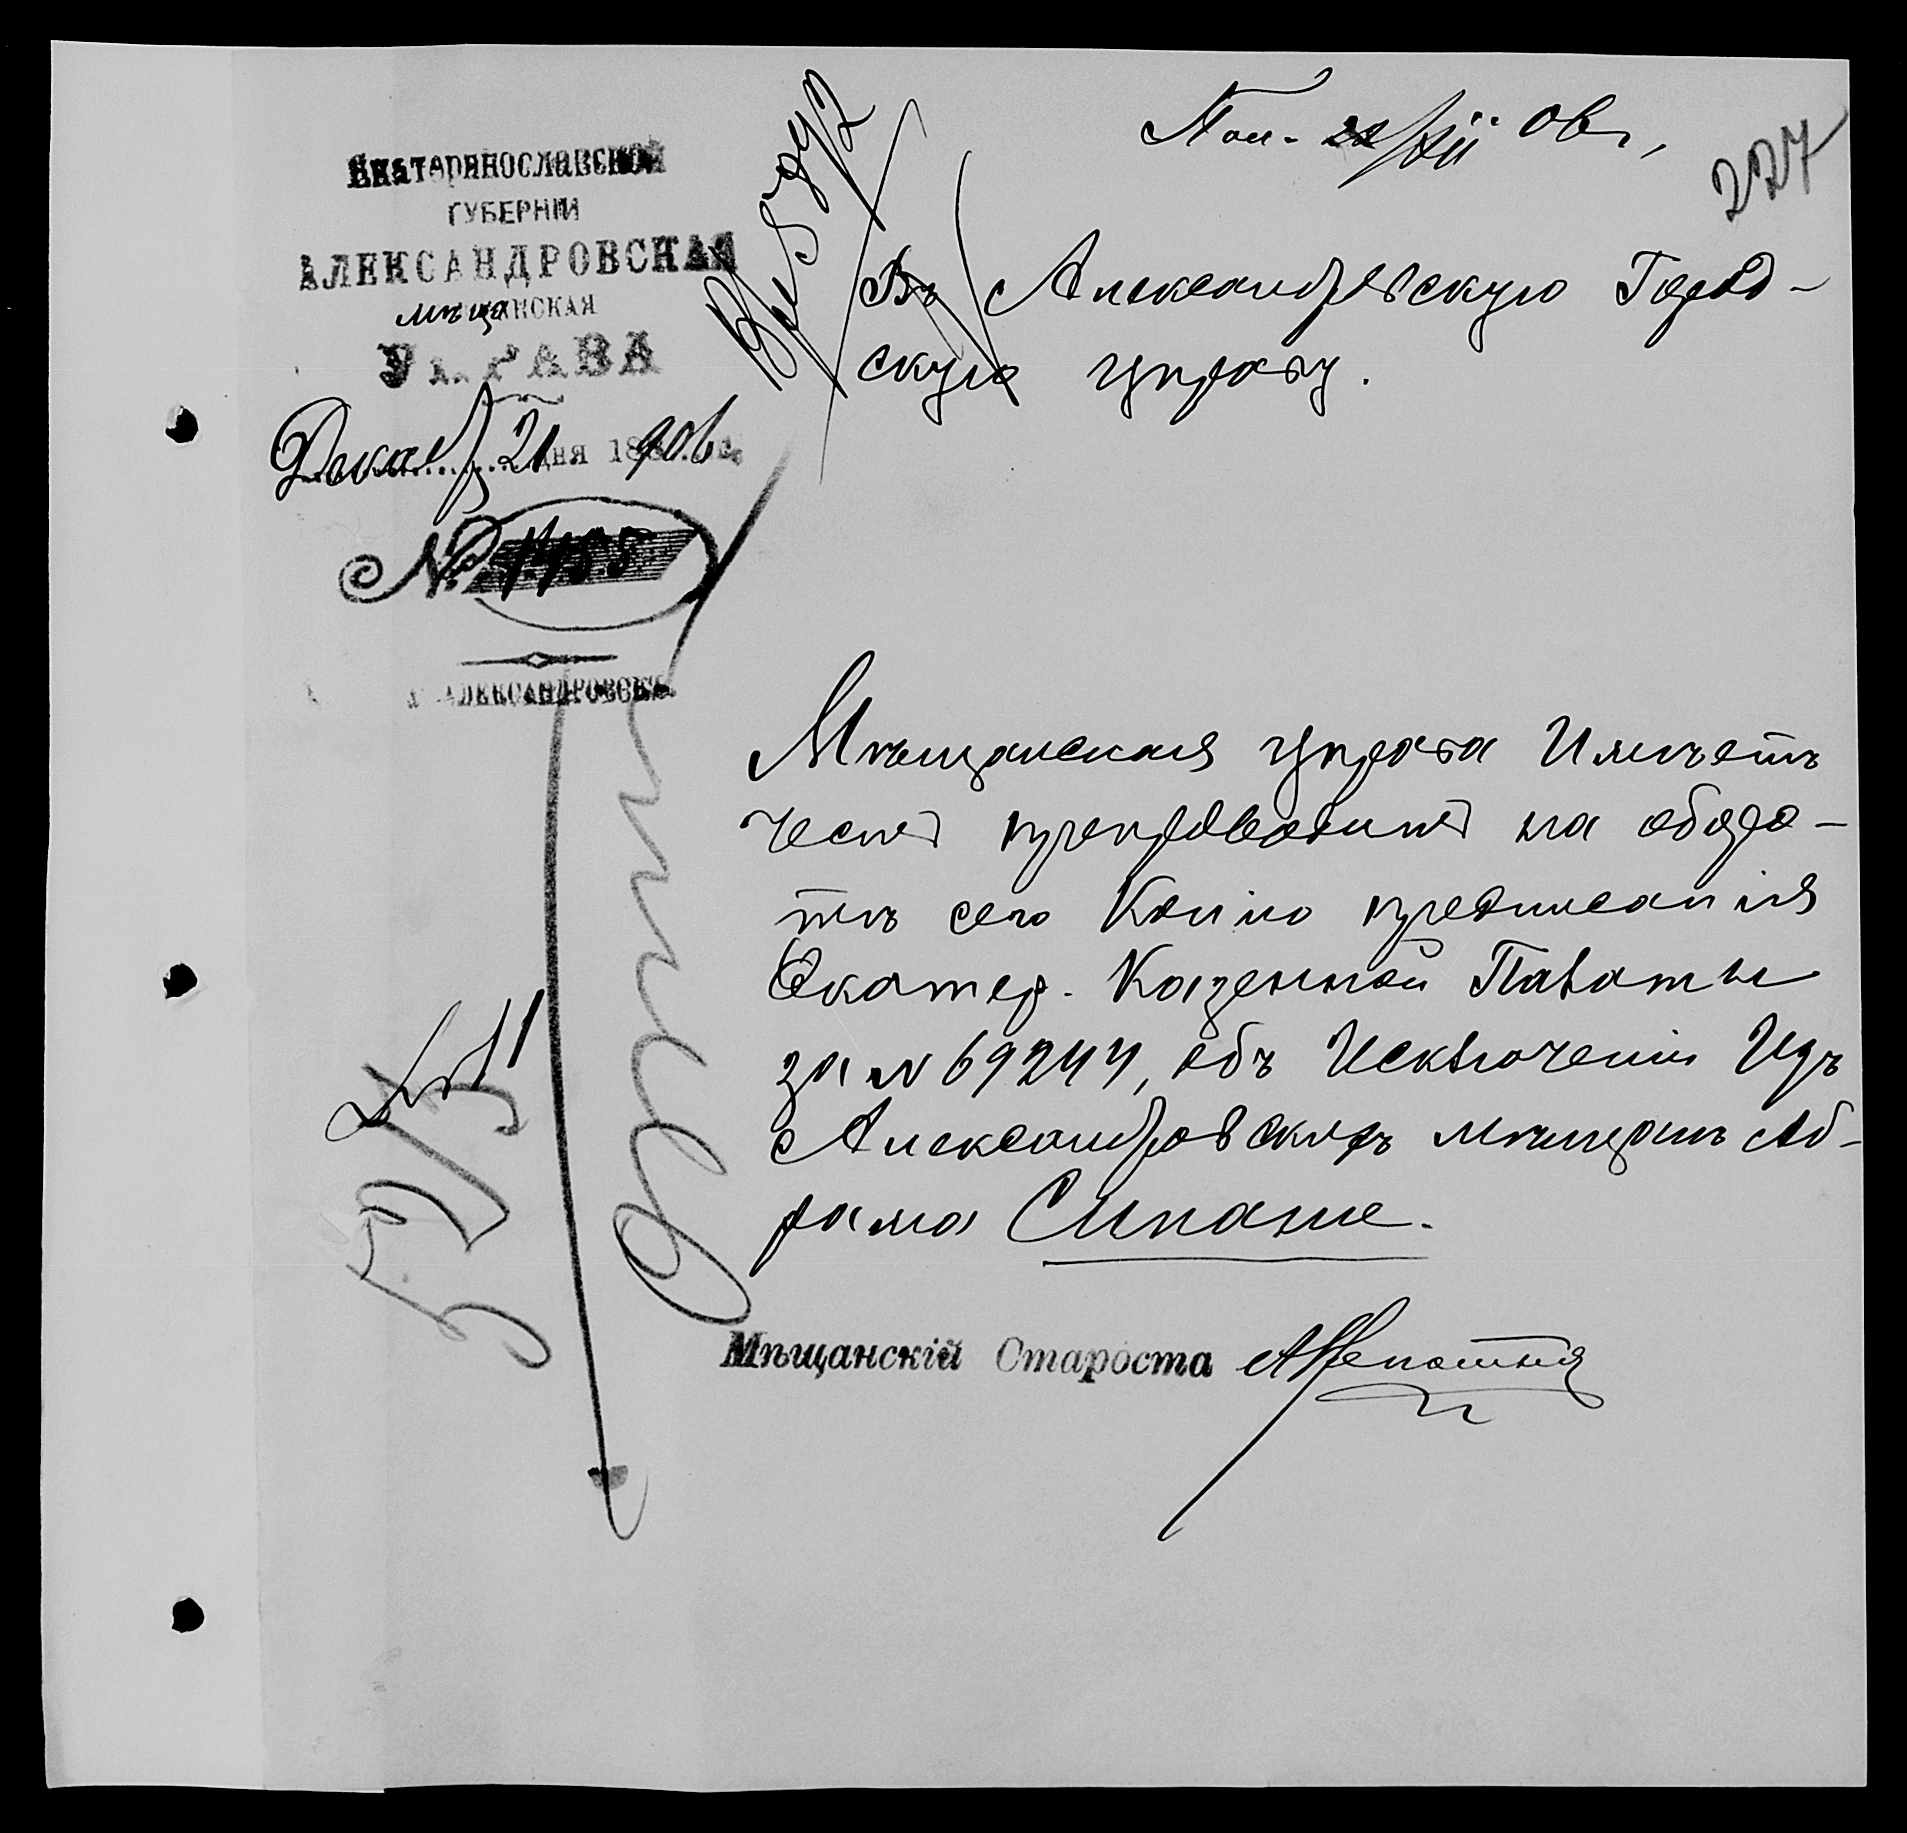 Пол. 22/XII 06 г.,
227
Екатеринославской
ГУБЕРНІИ
АЛЕКСАНДРОВСКАЯ
мѣщАНСКАЯ
УПРАВА
Декабр 21 дня 1906 г.
№ 1155
Г. АЛЕКСАНДРОВСКЪ
Въ Александровскую Город-
скую управу.
Мѣщанская управа Имѣетъ
честь препроводить на оборо-
тѣ сего Копію предписанія
Екатер. Казенной Палаты
за № 69244, объ Исключеніи Изъ
Александровскихъ мѣщанъ Аб-
рама Спкаше.
Мѣщанскій Староста